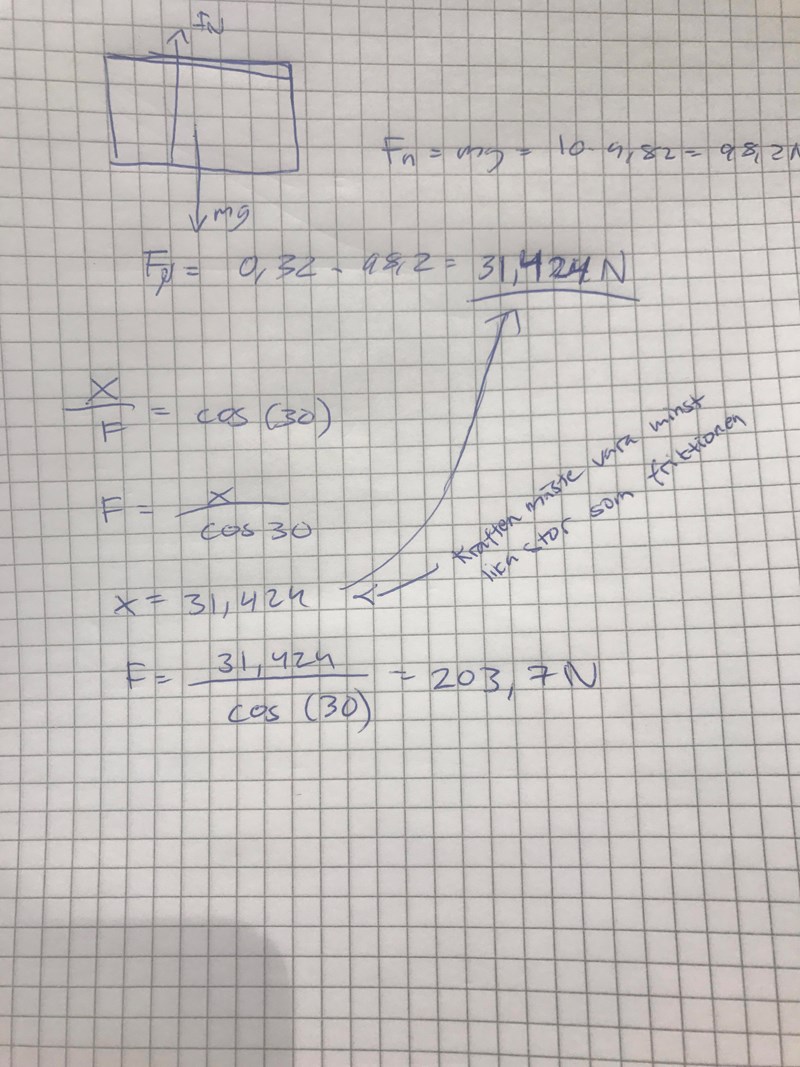 FN
Fn = mg = 10 · 9,82 = 98,2N
mg
Fµ = 0,32 · 98,2 = 31,424 N
x/F = cos (30)
F = x/cos 30
Kraften måste vara minst
lika stor som friktionen
x = 31,424
F = 31,424/cos (30) = 203,7N